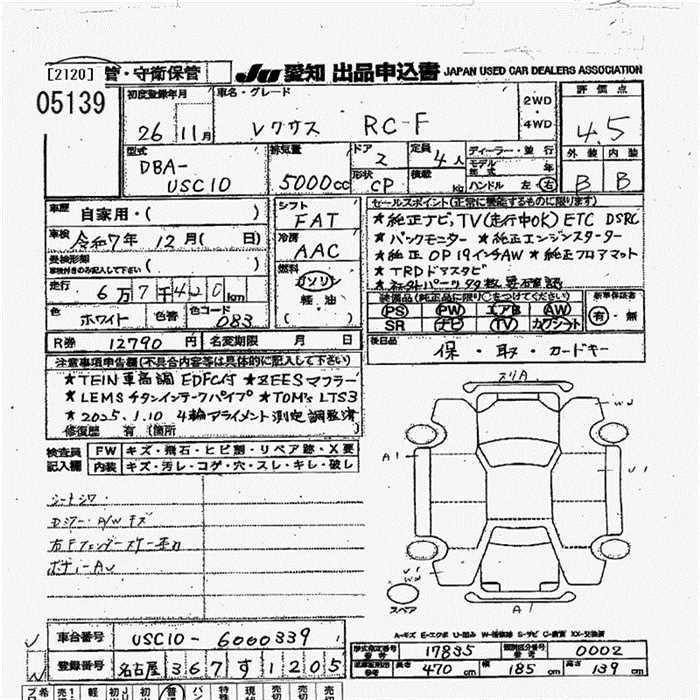 [2120] 管・守衛保管
JU 愛知 出品申込書 JAPAN USED CAR DEALERS ASSOCIATION
05139
初度登録年月 車名・グレード 2WD・4WD 評価点
26年 11月 レクサス RC-F 4.5
型式 排気量 ドア 定員 ディーラー・並行 外装 内装
DBA-USC10 5000cc 2 4人 モデル年式 年 B B
形状 CP 積載 kg ハンドル 左・右
車歴 自家用・( )
シフト FAT
セールスポイント(正常に機能するものに限ります)
車検 令和7年 12月( 日)
冷房 AAC
★純正ナビ,TV(走行中OK) ETC DSRC
★バックモニター ★純正エンジンスターター
★純正OP19インチAW ★純正フロアマット
★TRDドアスタビ
★社外パーツ多数要確認
走行 6万7千420km
燃料 ガソリン 軽・油 ( )
装備品(純正品に限り○をつけてください) 新車保証書
PS PW エアB AW 有・無
SR ナビ TV カワシート
色 ホワイト 色番 色コード 083
R券 12790円 名変期限 月 日
後日品 保・取・カードキー
注意事項申告欄(不具合内容等は具体的に記入して下さい)
★TEIN車高調 EDFC付 ★ZEESマフラー
★LEMSチタンインテークパイプ ★TOM's LTS3
★2025.1.10 4輪アライメント測定調整済
修復歴 有(箇所
検査員記入欄 FW キズ・飛石・ヒビ割・リペア跡・X要
内装 キズ・汚レ・コゲ・穴・スレ・キレ・破レ
シートシワ
A/Wキズ
右Fフェンダー
ボディーAU
スリA
WU
A1
U1
U1
WU
スペア
A1
A-キズ E-エクボ U-凹み W-補修跡 S-サビ C-腐食 XX-交換済
車台番号 USC10-6000339
登録番号 名古屋 367 す 1205
型式指定番号 17835 類別区分番号 0002
長さ 470cm 幅 185cm 高さ 139cm